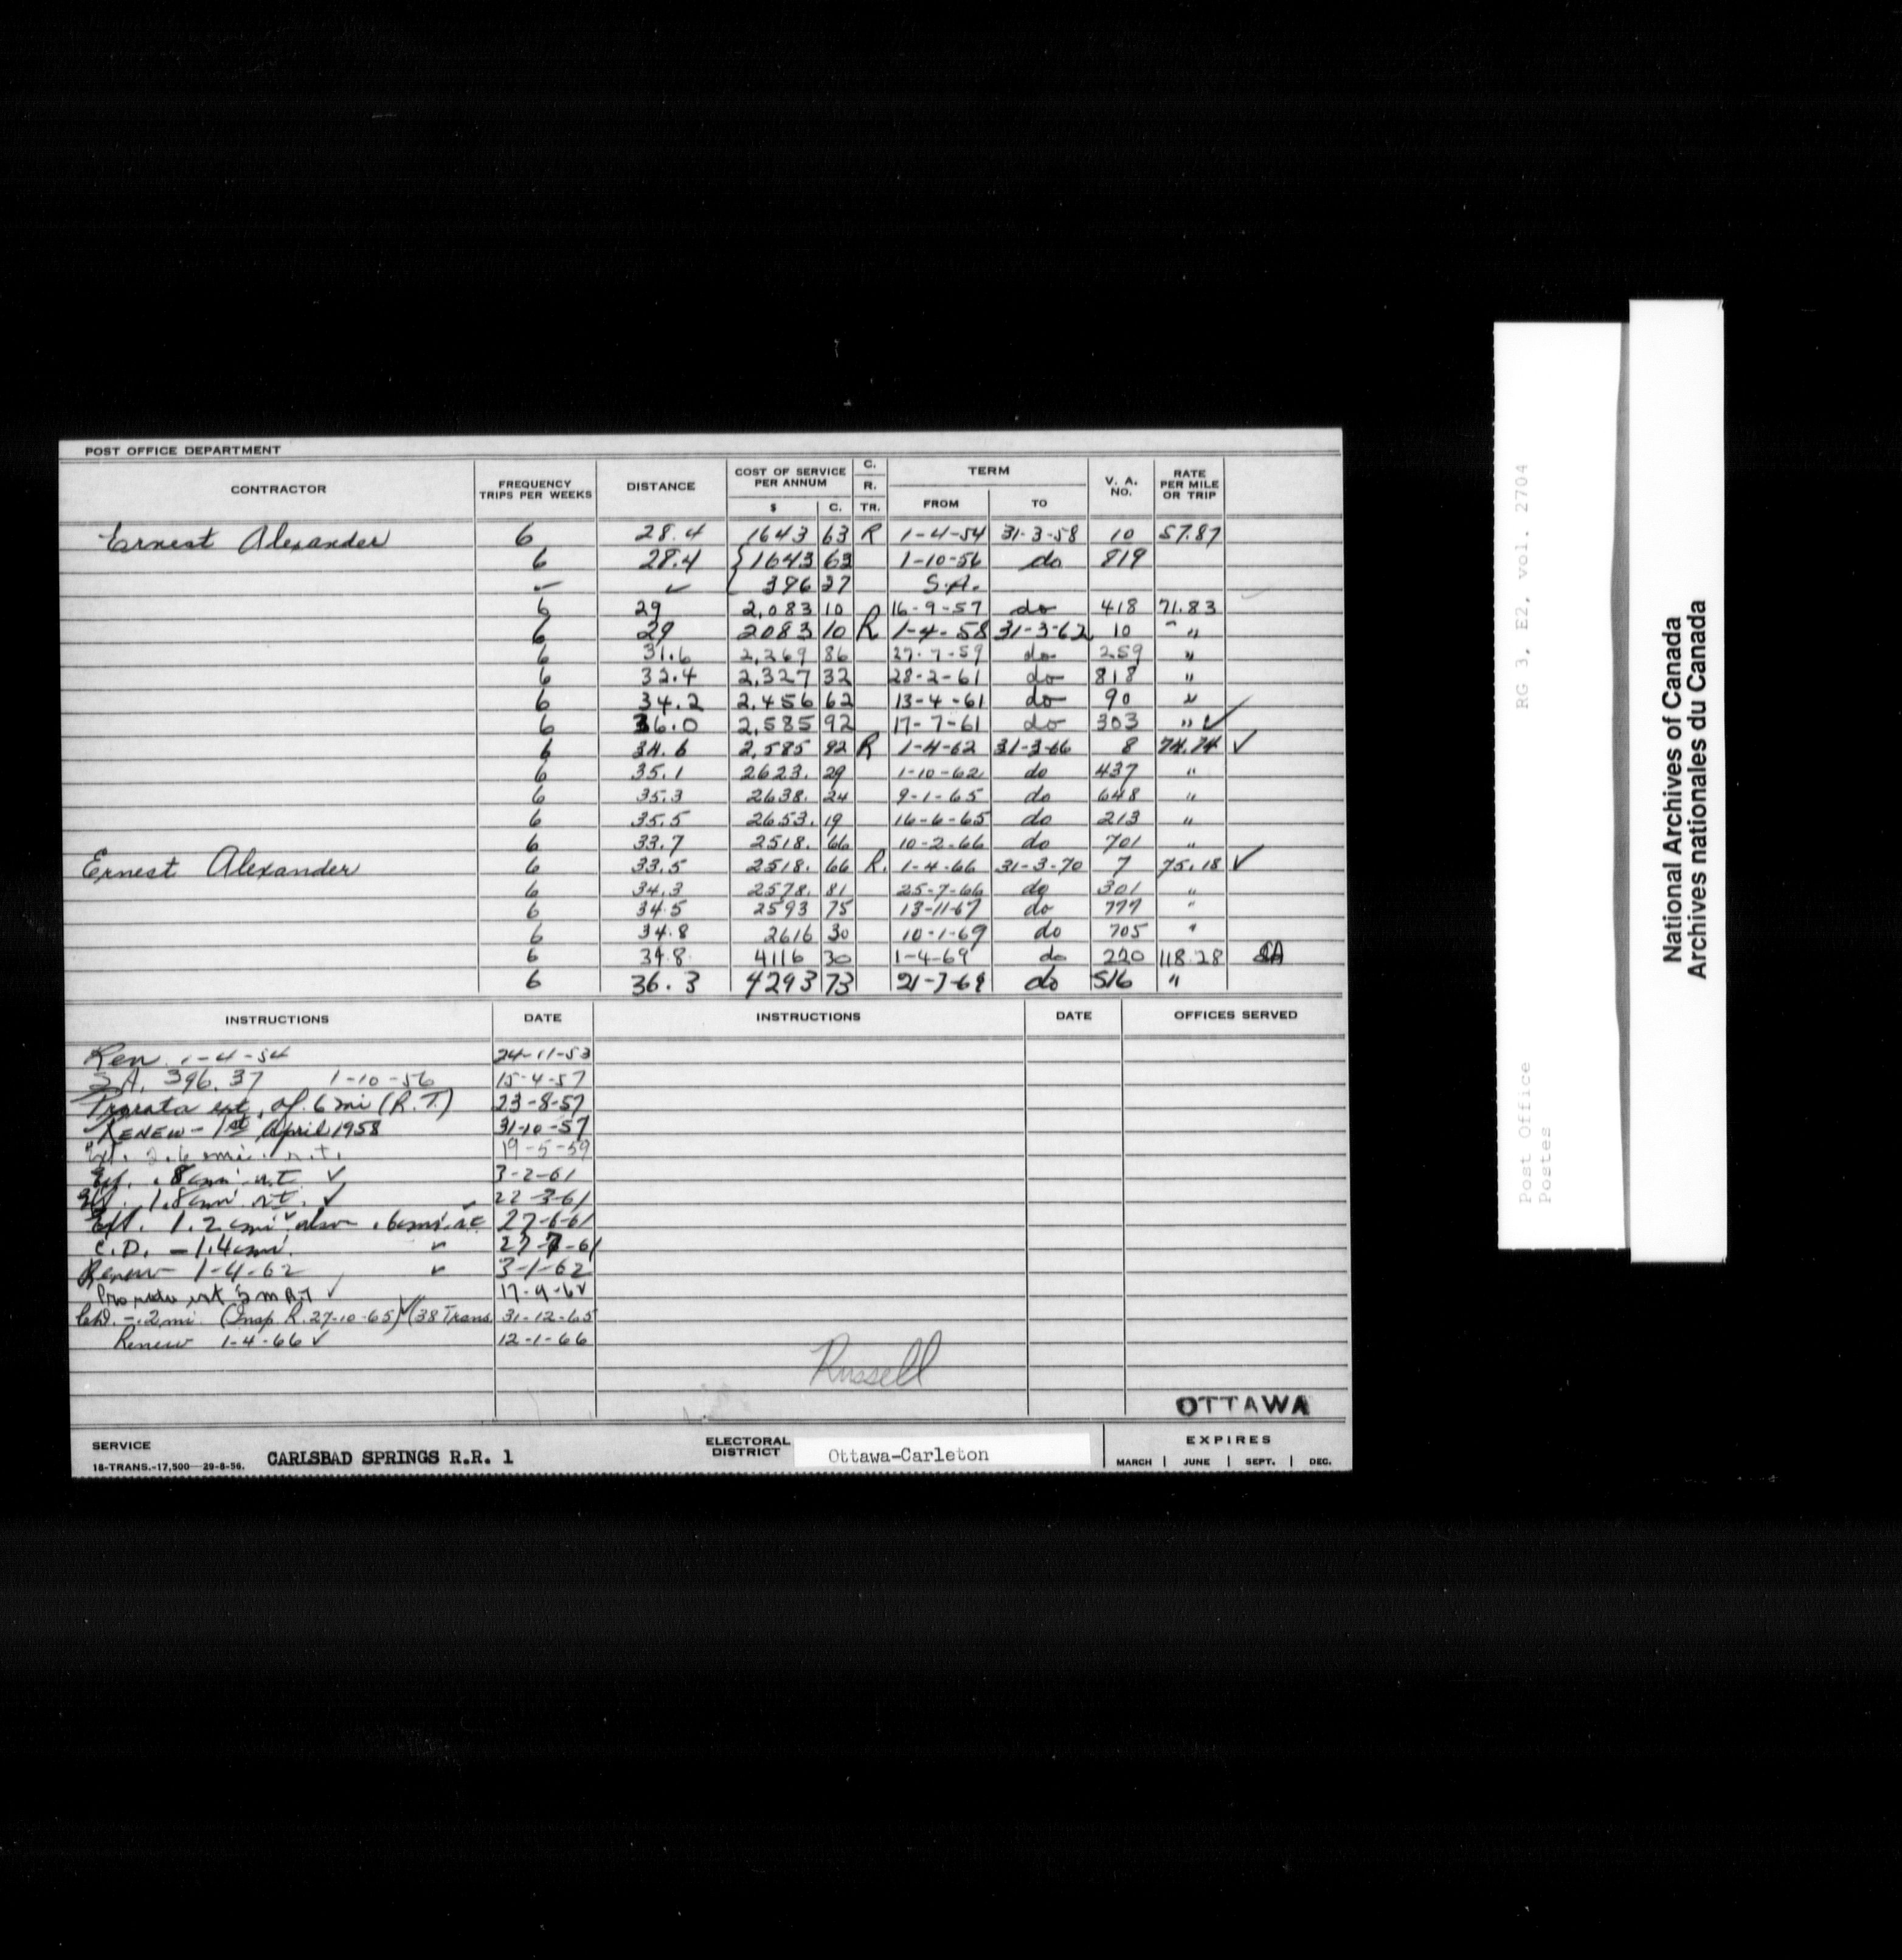 POST OFFICE DEPARTMENT
CONTRACTOR FREQUENCY TRIPS PER WEEKS DISTANCE COST OF SERVICE PER ANNUM $ C. C. R. TR. TERM FROM TO V. A. NO. RATE PER MILE OR TRIP
Ernest Alexander 6 28.4 1643 63 R 1-4-54 31-3-58 10 57.87
6 28.4 { 1643 63 1-10-56 do 819
✓ ✓ 396 37 S.A.
6 29 2,083 10 16-9-57 do 418 71.83
6 29 2083 10 R 1-4-58 31-3-62 10 "
6 31.6 2,269 86 27-7-59 do 259 "
6 32.4 2,327 32 28-2-61 do 818 "
6 34.2 2,456 62 13-4-61 do 90 "
6 36.0 2,585 92 17-7-61 do 303 " ✓
6 34.6 2,585 92 R 1-4-62 31-3-66 8 74.74 ✓
6 35.1 2623. 29 1-10-62 do 437 "
6 35.3 2638. 24 9-1-65 do 648 "
6 35.5 2653. 19 16-6-65 do 213 "
6 33.7 2518. 66 10-2-66 do 701 "
Ernest Alexander 6 33.5 2518. 66 R. 1-4-66 31-3-70 7 75.18 ✓
6 34.3 2578. 81 25-7-66 do 301 "
6 34.5 2593 75 13-11-67 do 777 "
6 34.8 2616 30 10-1-69 do 705 "
6 34.8 4116 30 1-4-69 do 220 118.28 SA
6 36.3 4293 73 21-7-69 do 516 "
INSTRUCTIONS DATE INSTRUCTIONS DATE OFFICES SERVED
Ren. 1-4-54 24-11-53
S.A. 396.37 1-10-56 15-4-57
Prorata ext. of .6 mi (R.T.) 23-8-57
RENEW - 1st April 1958 31-10-57
Ext. 2.6 mi. r.t. 19-5-59
Ext. .8 mi r.t. ✓ 3-2-61
Ext. 1.8 mi r.t. ✓ 22-3-61
Ext. 1.2 mi ✓ also .6 mi 27-6-61
C.D. - 1.4 mi. ✓ 27-7-61
Renew 1-4-62 ✓ 3-1-62
Pro rata ext .5 m R.T ✓ 17-9-62
Ch'd. - .2 mi. (Insp R. 27-10-65) ✓ (38 Trans 31-12-65
Renew 1-4-66 ✓ 12-1-66
Russell
OTTAWA
SERVICE CARLSBAD SPRINGS R.R. 1 ELECTORAL DISTRICT Ottawa-Carleton EXPIRES
18-TRANS.-17,500-29-8-56. MARCH | JUNE | SEPT. | DEC.
RG 3, E2, vol. 2704
Post Office
Postes
National Archives of Canada
Archives nationales du Canada